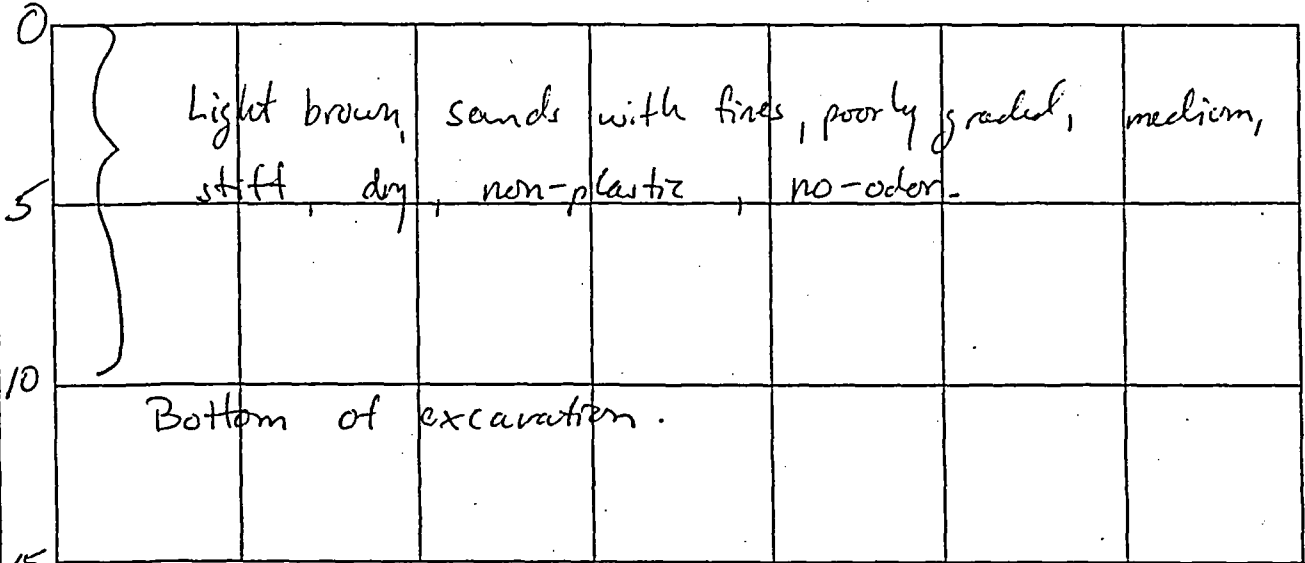 0
Light brown, sands with fines, poorly graded, medium,
stiff, dry, non-plastic, no-odor.
5
10
Bottom of excavation.
15